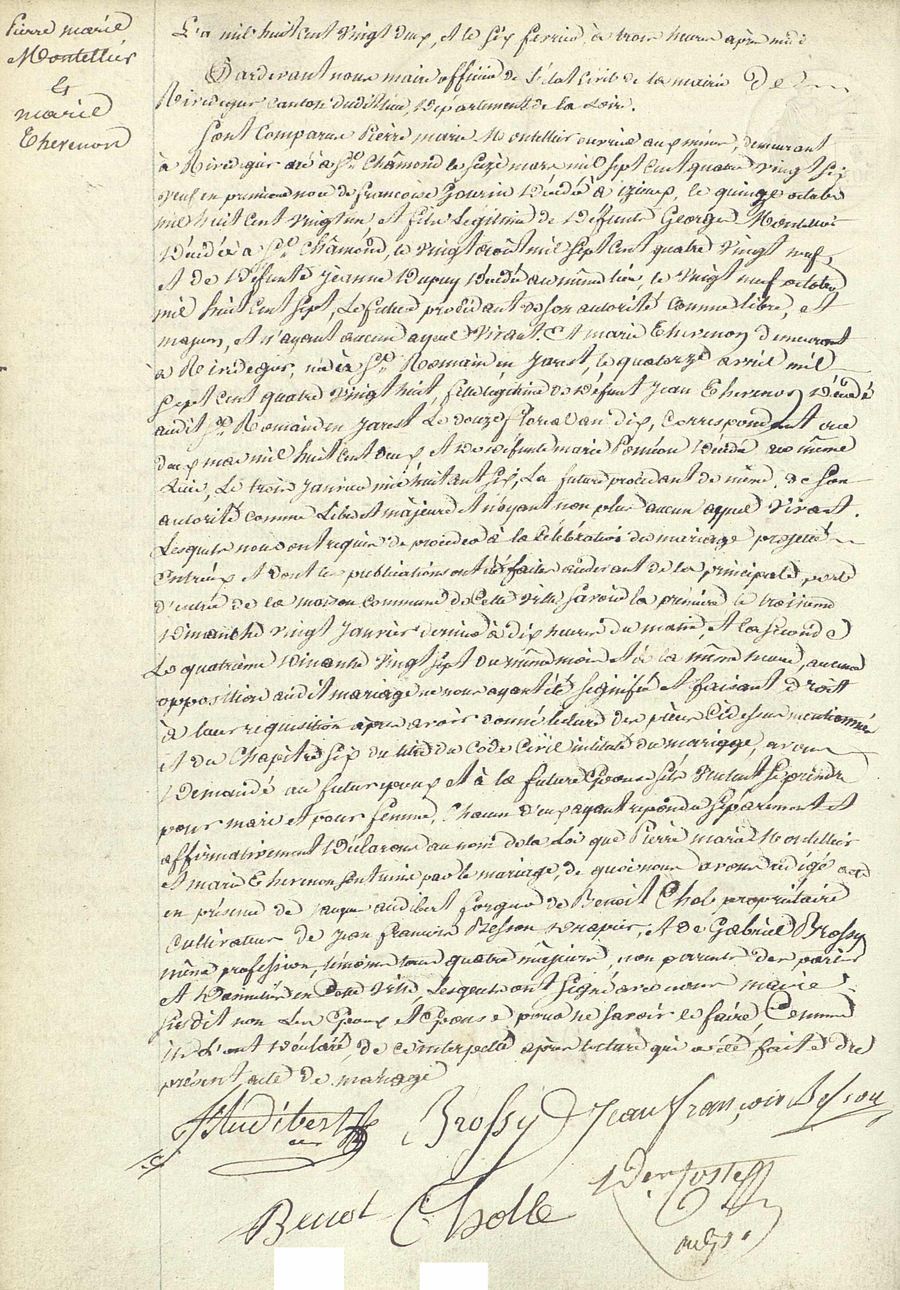 Pierre marie
Montellier
&
marie
Thevenon
L'an mil huit cent vingt deux, et le six fevrier, à trois heures après midi
Pardevant nous maire officier de l'état civil de la mairie de
Rivedegier canton dudit lieu, Département de la Loire.
Sont comparus Pierre marie Montellier ouvrier aux mines, demeurant
à Rivedegier né à St. Chamond le seize mars mil sept cent quatre vingt six
veuf en première noce de françoise décédée à le quinze octobre
mil huit cent vingt un et fils légitime de défunts George Montellier
décédé à St. Chamond, le vingt août mil sept cent quatre vingt neuf,
et de défunte Jeanne Dupuy décédée au même lieu, le vingt neuf octobre
mil huit cent sept, Le futur procédant de son autorité comme libre, et
majeur, et n'ayant aucun ayeul vivant. Et marie Thevenon demeurant
à Rivedegier, née à St. Romain en Jarest, le quatorze avril mil
sept cent quatre vingt huit, fille légitime de défunt Jean Thevenon décédé
audit St. Romain en Jarest le douze floréal an dix, correspondant au
deux mai mil huit cent deux et de défunte marie décédée au même
Lieu, Le trois Janvier mil huit cent six, La future procédant de même, de son
autorité comme Libre et majeure et n'ayant non plus aucun ayeul vivant.
Lesquels nous ont requis de procéder à la célébration du mariage projetté
entr'eux et dont les publications ont été faites audevant de la principale porte
d'entrée de la maison commune de cette ville savoir la première le troisième
Dimanche vingt Janvier dernier à dix heures du matin, et la seconde
Le quatrième Dimanche vingt sept du même mois et à la même heure, aucune
opposition audit mariage ne nous ayant été signifiée et faisant droit
à leur requisition après avoir donné lecture des pièces cidessus mentionnées
et du Chapitre six du titre du Code Civil intitulé du mariage, avons
Demandé au futur époux et à la future Epouse s'ils veulent se prendre
pour mari et pour femme, Chacun d'eux ayant répondu séparément et
affirmativement Déclarons au nom de la Loi que Pierre marie Montellier
et marie Thevenon sont unis par le mariage, de quoi nous avons rédigé acte
en présence de Jacques audibert forgeur de Benoit Chol propriétaire
cultivateur de Jean François Besson et de Gabriel Brossy
même profession, témoins tous quatre majeurs, non parents des parties
et Domiciliés en cette ville, Lesquels ont signé avec nous maire
susdit non Les Epoux et Epouse pour ne savoir le faire, Comme
ils l'ont déclaré de ce interpellés après lecture qui a été faite du
présent acte de mariage
J Audibert Brossy Jean françois Besson
Benoit Cholle